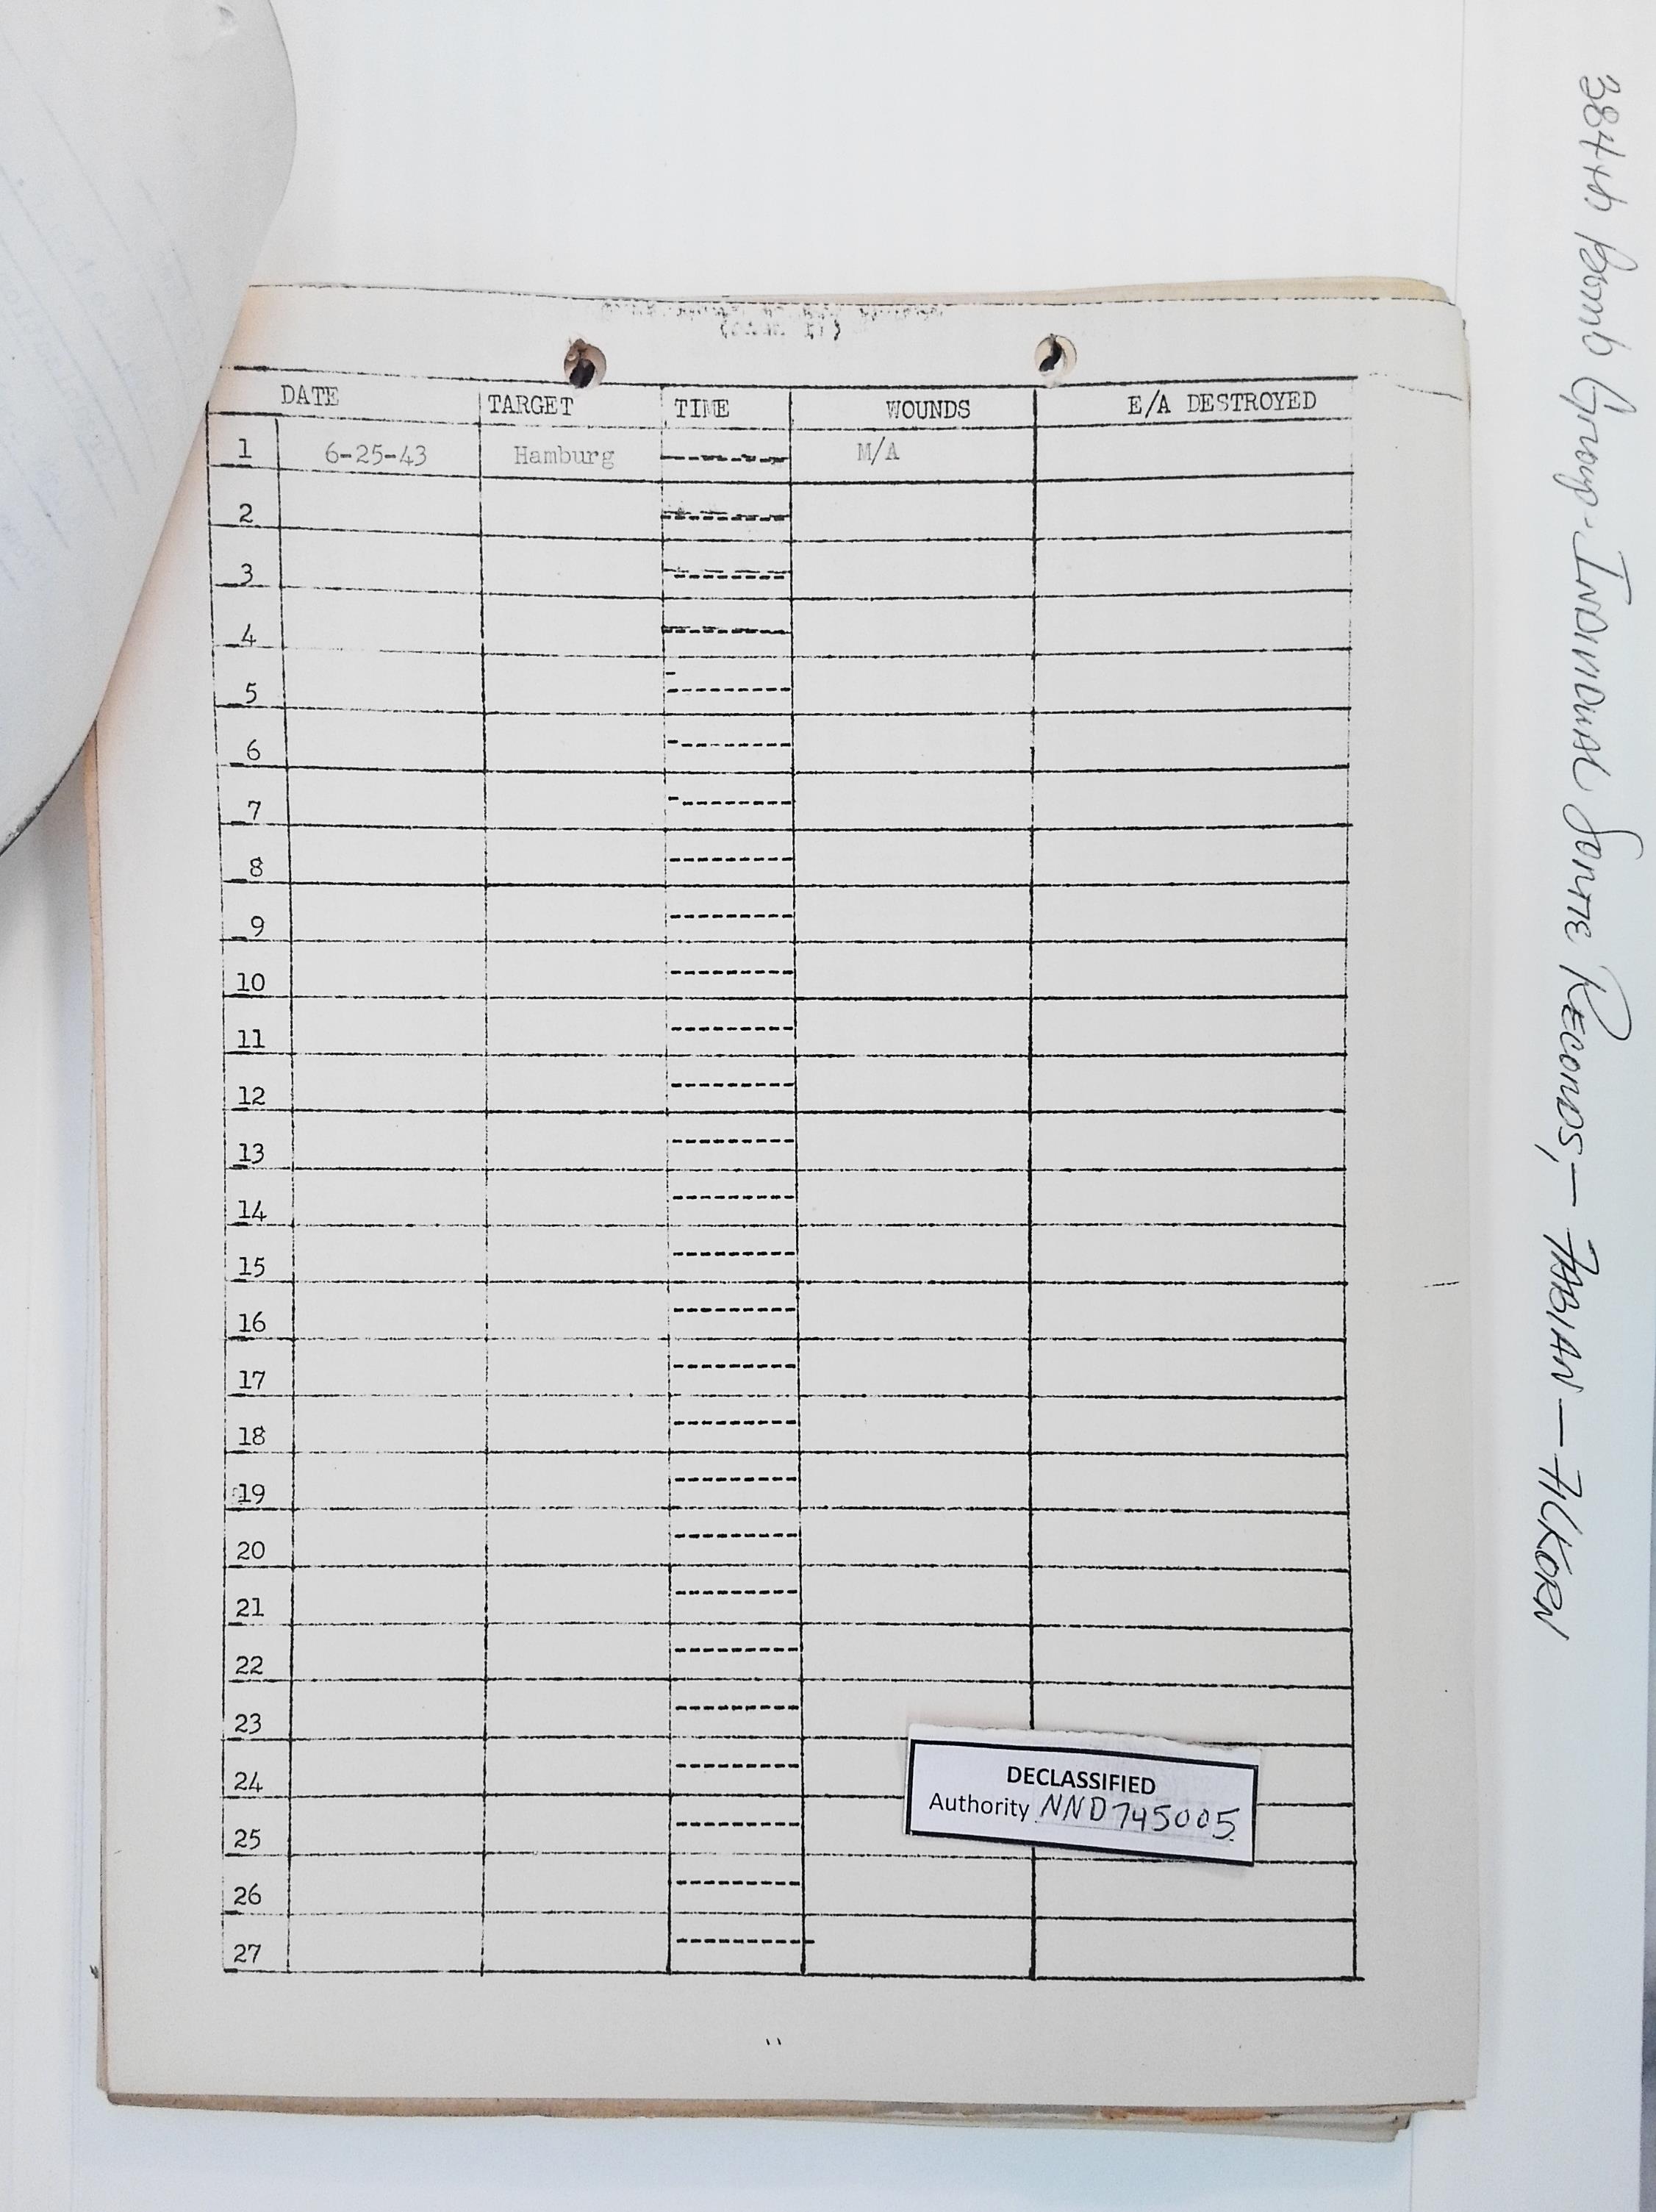 DATE TARGET TIME WOUNDS E/A DESTROYED
1 6-25-43 Hamburg M/A
2
3
4
5
6
7
8
9
10
11
12
13
14
15
16
17
18
19
20
21
22
23
24
25
26
27
DECLASSIFIED
Authority NND745005
384th Bomb Group-Individual Sortie Records,— FABIAN — FICKORN